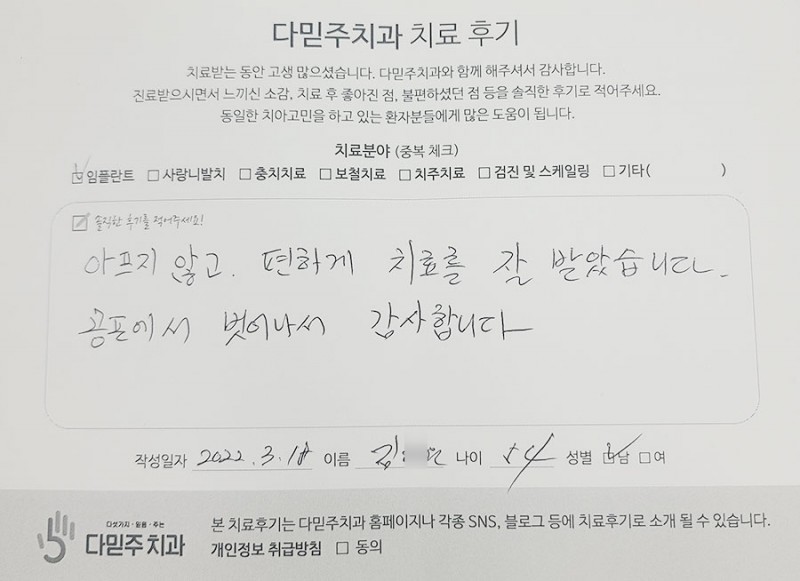 다믿주치과 치료 후기
치료받는 동안 고생 많으셨습니다. 다믿주치과와 함께 해주셔서 감사합니다.
진료받으시면서 느끼신 소감, 치료 후 좋아진 점, 불편하셨던 점 등을 솔직한 후기로 적어주세요.
동일한 치아고민을 하고 있는 환자분들에게 많은 도움이 됩니다.
치료분야 (중복 체크)
☑임플란트 □사랑니발치 □충치치료 □보철치료 □치주치료 □검진 및 스케일링 □기타( )
솔직한 후기를 적어주세요!
아프지 않고. 편하게 치료를 잘 받았습니다.
공포에서 벗어나서 감사합니다
작성일자 2022. 3. 18 이름 김 나이 54 성별 ☑남 □여
다섯가지·믿음·주는
다믿주치과
본 치료후기는 다믿주치과 홈페이지나 각종 SNS, 블로그 등에 치료후기로 소개 될 수 있습니다.
개인정보 취급방침 □ 동의